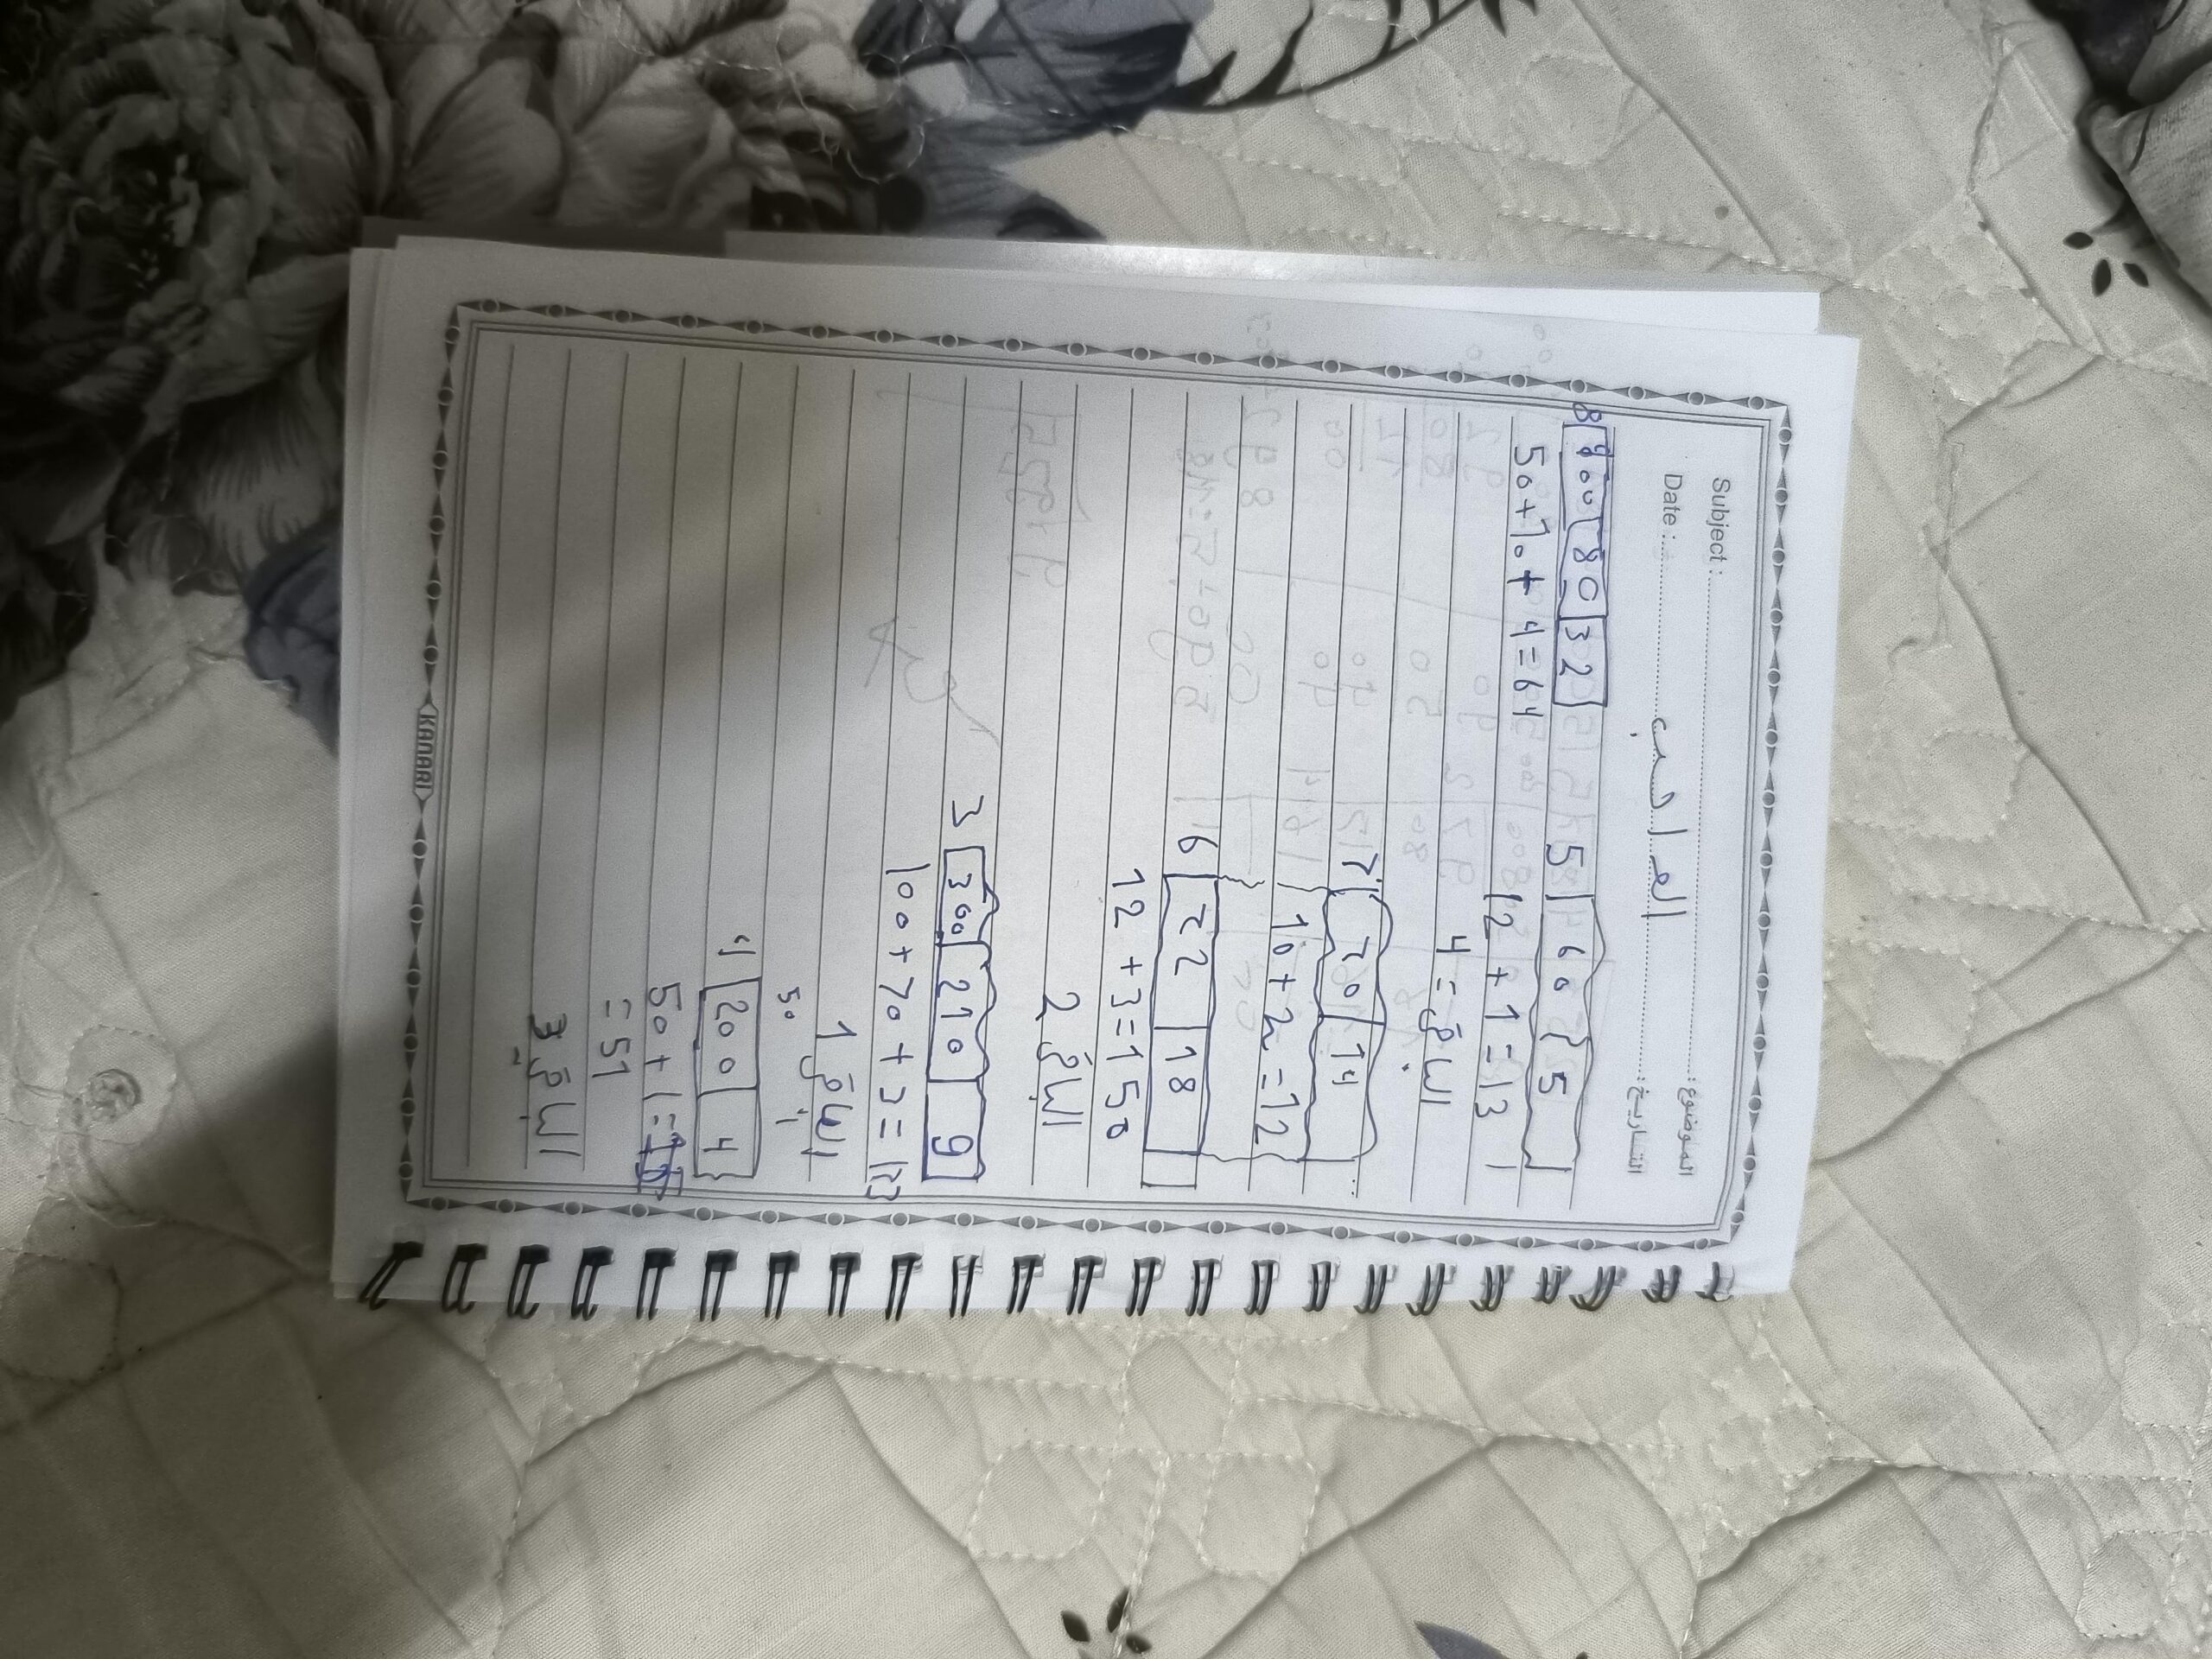 Subject : الموضوع:
Date : التاريخ:
5 60 5
12 + 1 = 13
الباقي = 4
7 70 14
10 + 2 = 12
6 72 18
12 + 3 = 150
الباقي 2
3 300 210 9
100 + 70 + 3 = 173
الباقي 1
50 1
4 200 4
50 + 1 =
= 51
الباقي 3
8 800 80 32
50 + 70 + 4 = 64
KANARI